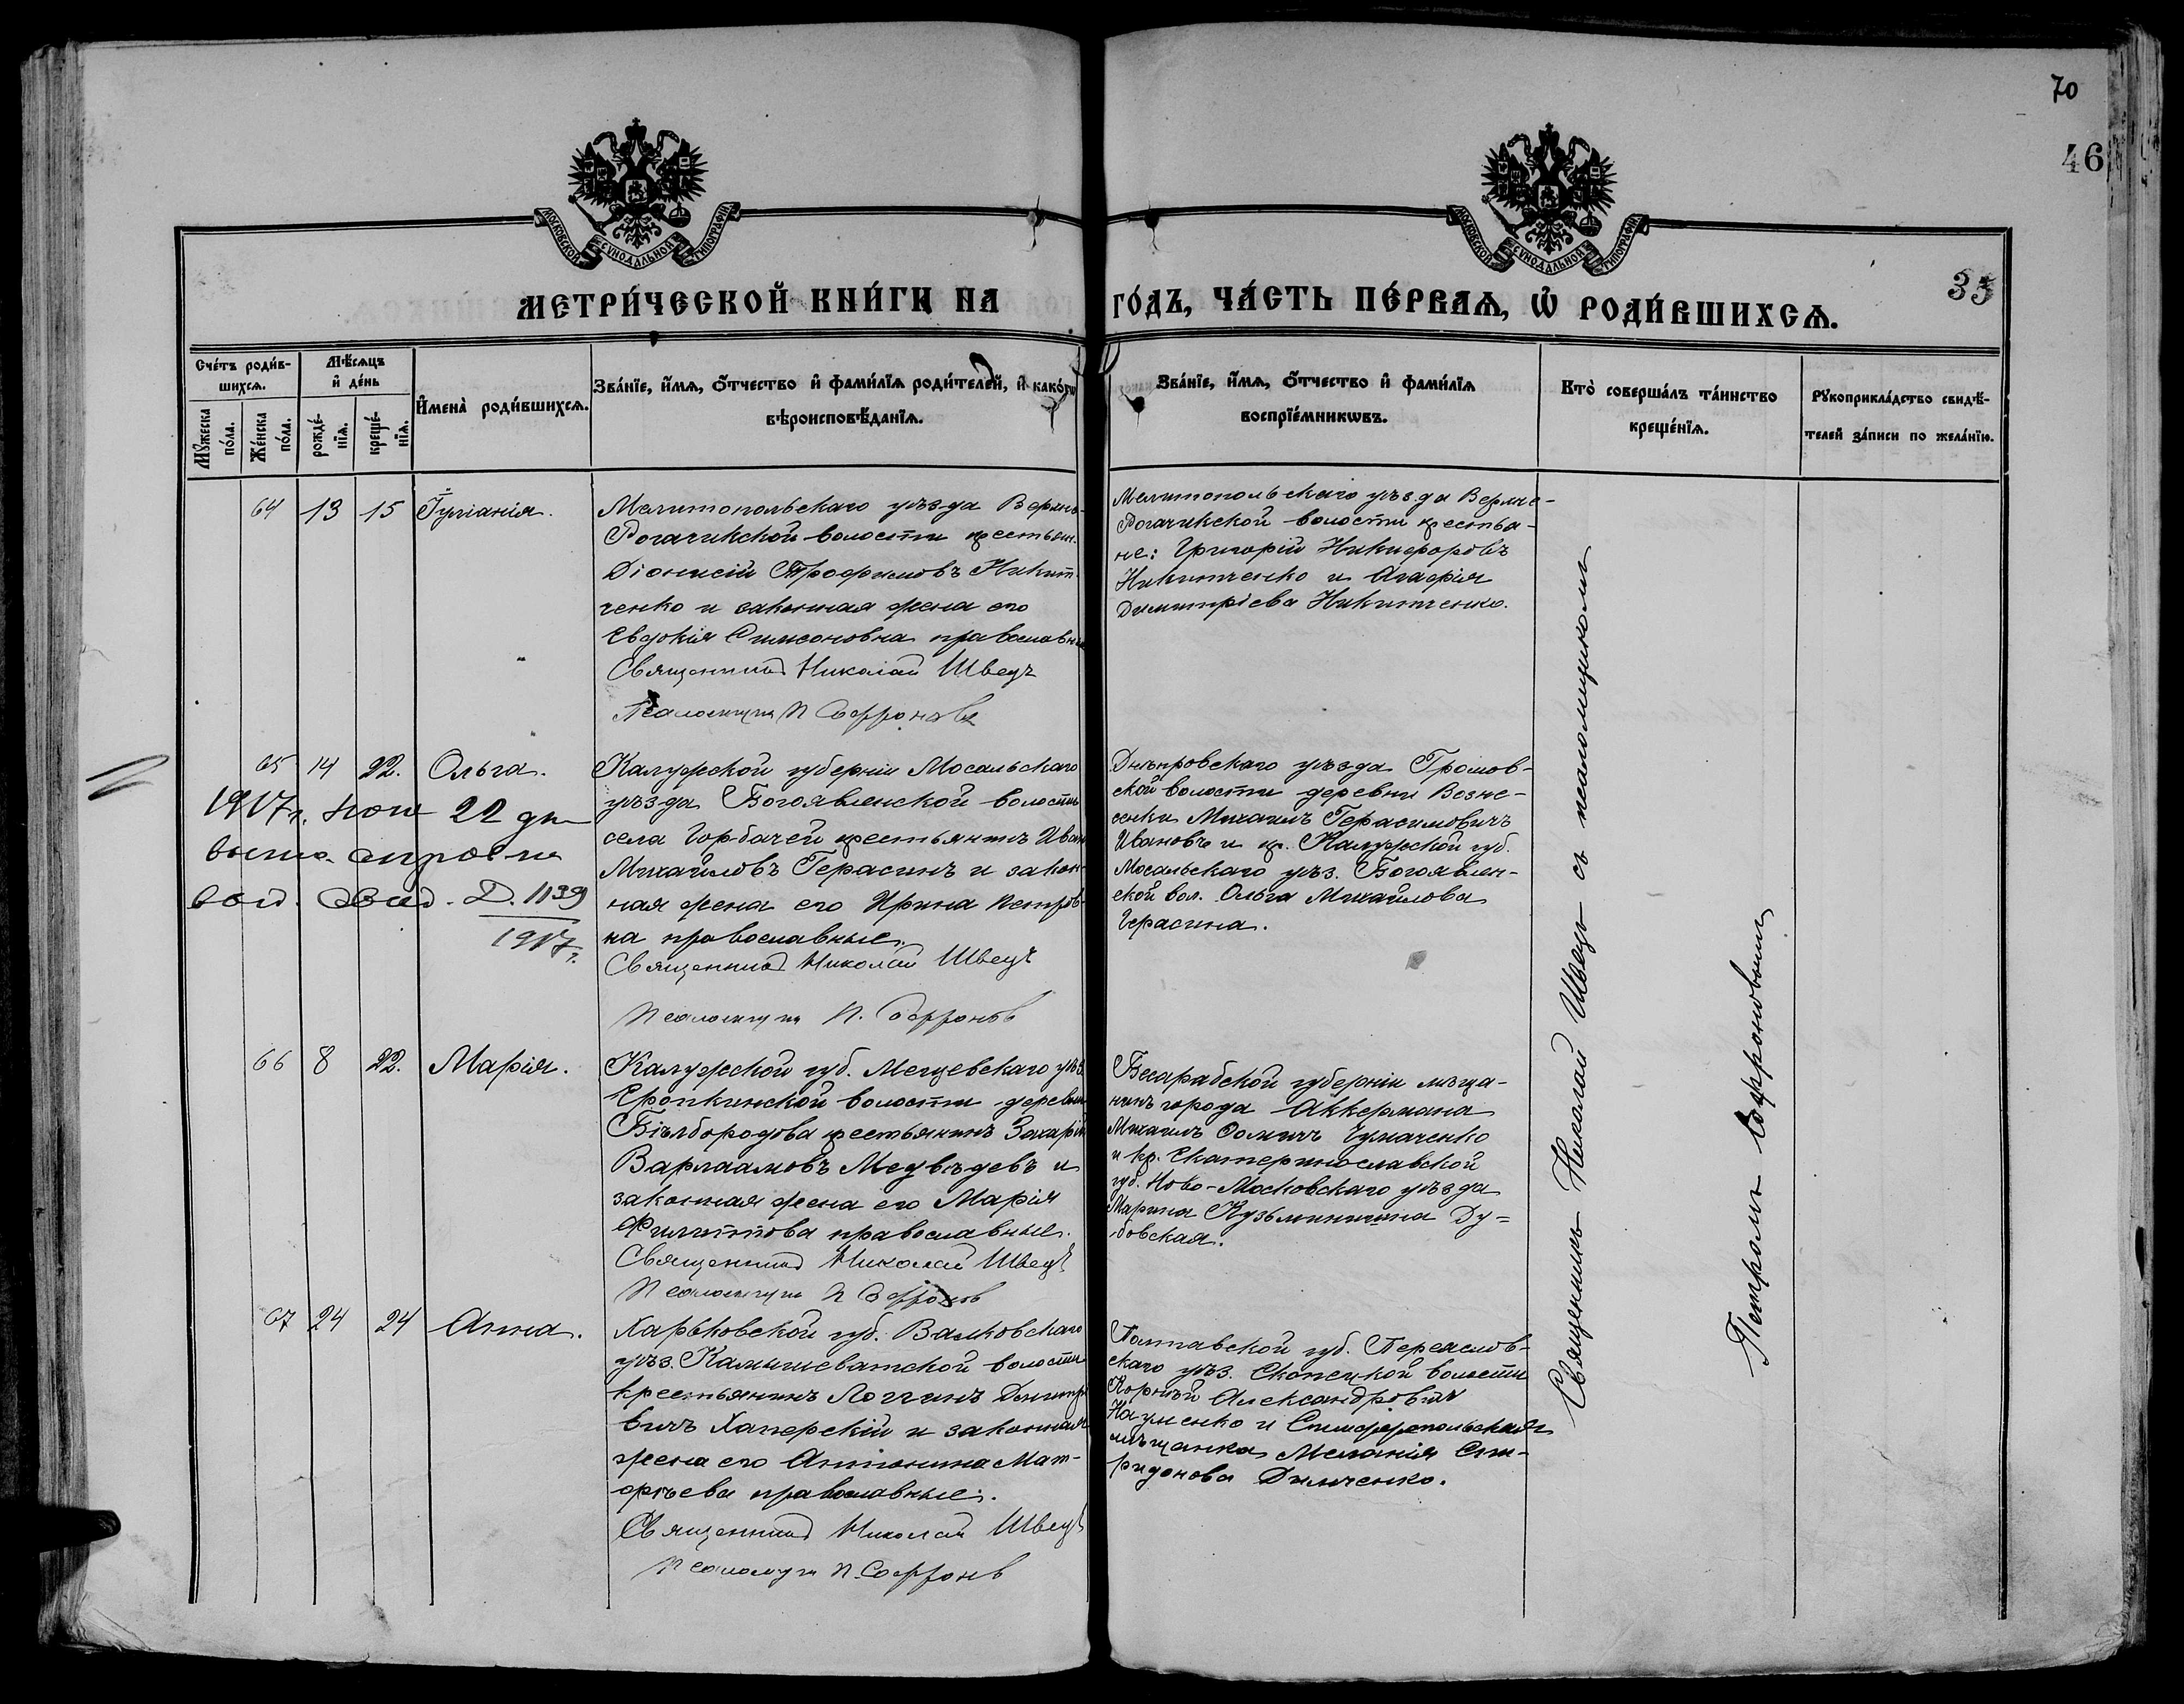 70
46
35
МОСКОВСКОЙ СѴНОДАЛЬНОЙ ТИПОГРАФІИ
МОСКОВСКОЙ СѴНОДАЛЬНОЙ ТИПОГРАФІИ
МЕТРИ́ЧЕСКОЙ КНИ́ГИ НА ГО́ДЪ, ЧА́СТЬ ПЕ́РВАѦ, Ѡ҆ РОДИ́ВШИХСѦ.
Сче́тъ роди́в-
шихсѧ.
Мꙋ́жеска по́ла.
Же́нска по́ла.
Мѣ́сѧцъ
и҆ де́нь
рожде́-
нїѧ.
креще́-
нїѧ.
И҆мена̀ роди́вшихсѧ.
Зва́нїе, и҆́мѧ, ѻ҆́тчество и҆ фами́лїѧ роди́телей, и҆ како́гѡ
вѣроисповѣ́данїѧ.
Зва́нїе, и҆́мѧ, ѻ҆́тчество и҆ фами́лїѧ
воспрїе́мникѡвъ.
Кто̀ соверша́лъ та́инство
креще́нїѧ.
Рꙋкоприкла́дство свидѣ́-
телей за́писи по жела́нїю.
64 13 15 Іуліанія.
Мелитопольскаго уѣзда Верхне-
Рогачикской волости крестьян.
Діонисій Трофимовъ Никит-
ченко и законная жена его
Евдокія Симеоновна православные
Священникъ Николай Швецъ
Псаломщикъ П Софроновъ
Мелитопольскаго уѣзда Верхне-
Рогачикской волости крестья-
не: Григорій Никифоровъ
Никитченко и Агафія
Димитріева Никитченко.
65 14 22. Ольга.
1917 г. 22 дня
выпись
Д. 1139
1917 г.
Калужской губерніи Мосальскаго
уѣзда Богоявленской волости
села Горбачей крестьянинъ Иванъ
Михайловъ Герасинъ и закон-
ная жена его Ирина Петров-
на православные.
Священникъ Николай Швецъ
Псаломщикъ П. Софроновъ
Днѣпровскаго уѣзда Громов-
ской волости деревни Возне-
сенки Михаилъ Герасимовичъ
Ивановъ и кр. Калужской губ.
Мосальскаго уѣз. Богоявлен-
ской вол. Ольга Михайлова
Герасина.
66 8 22. Марія.
Калужской губ. Мещевскаго уѣз.
Еропкинской волости деревни
Бѣлбородова крестьянинъ Захарій
Варлаамовъ Медвѣдевъ и
законная жена его Марія
Филиппова православные.
Священникъ Николай Швецъ
Псаломщикъ П Софроновъ
Бесарабской губерніи мѣща-
нинъ города Аккермана
Михаилъ Фомичъ Чумаченко
и кр. Екатеринославской
губ. Ново-Московскаго уѣзда
Марина Кузьминична Ду-
бовская.
67 24 24 Анна.
Харьковской губ. Валковскаго
уѣз. Камышеватской волости
крестьянинъ Логгинъ Димитріе-
вичъ Хаперскій и законная
жена его Антонина Мат-
фѣева православные.
Священникъ Николай Швецъ
Псаломщикъ П. Софроновъ
Полтавской губ. Переяслов-
скаго уѣз. волости
Корнѣй Александровичъ
Науменко и Симферопольская
мѣщанка Меланія Спи-
ридонова Димченко.
Священникъ Николай Швецъ съ псаломщикомъ
Петромъ Софроновымъ